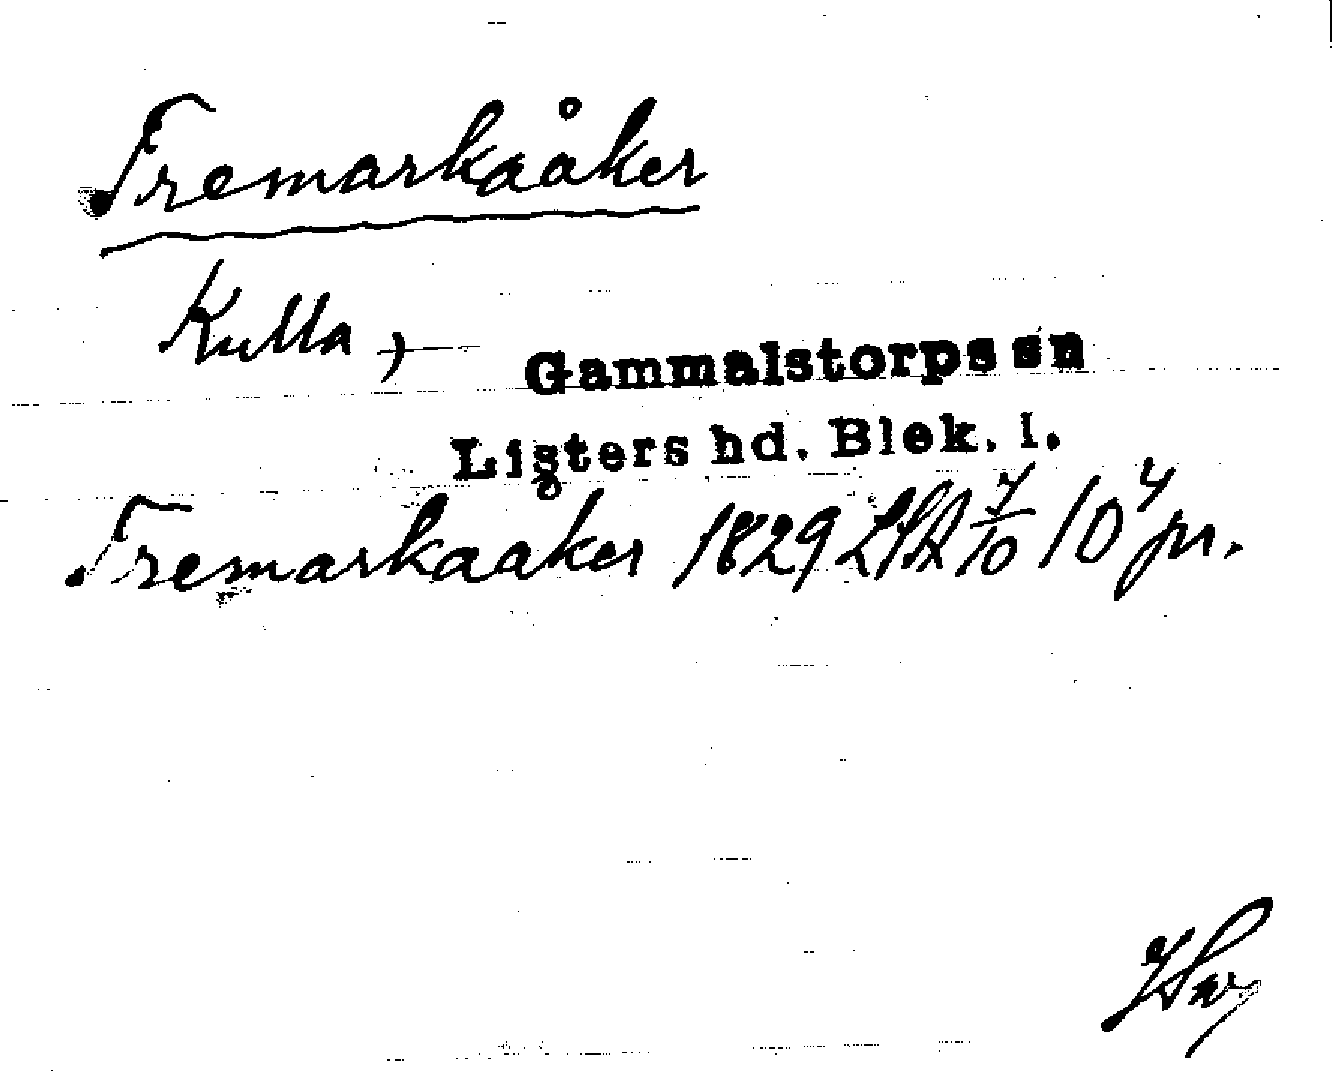 Tremarkaåker
Kulla,
Gammalstorps sn
Listers hd. Blek. l.
Tremarkaåker 1829 LSA 7/10 10 4 pr.